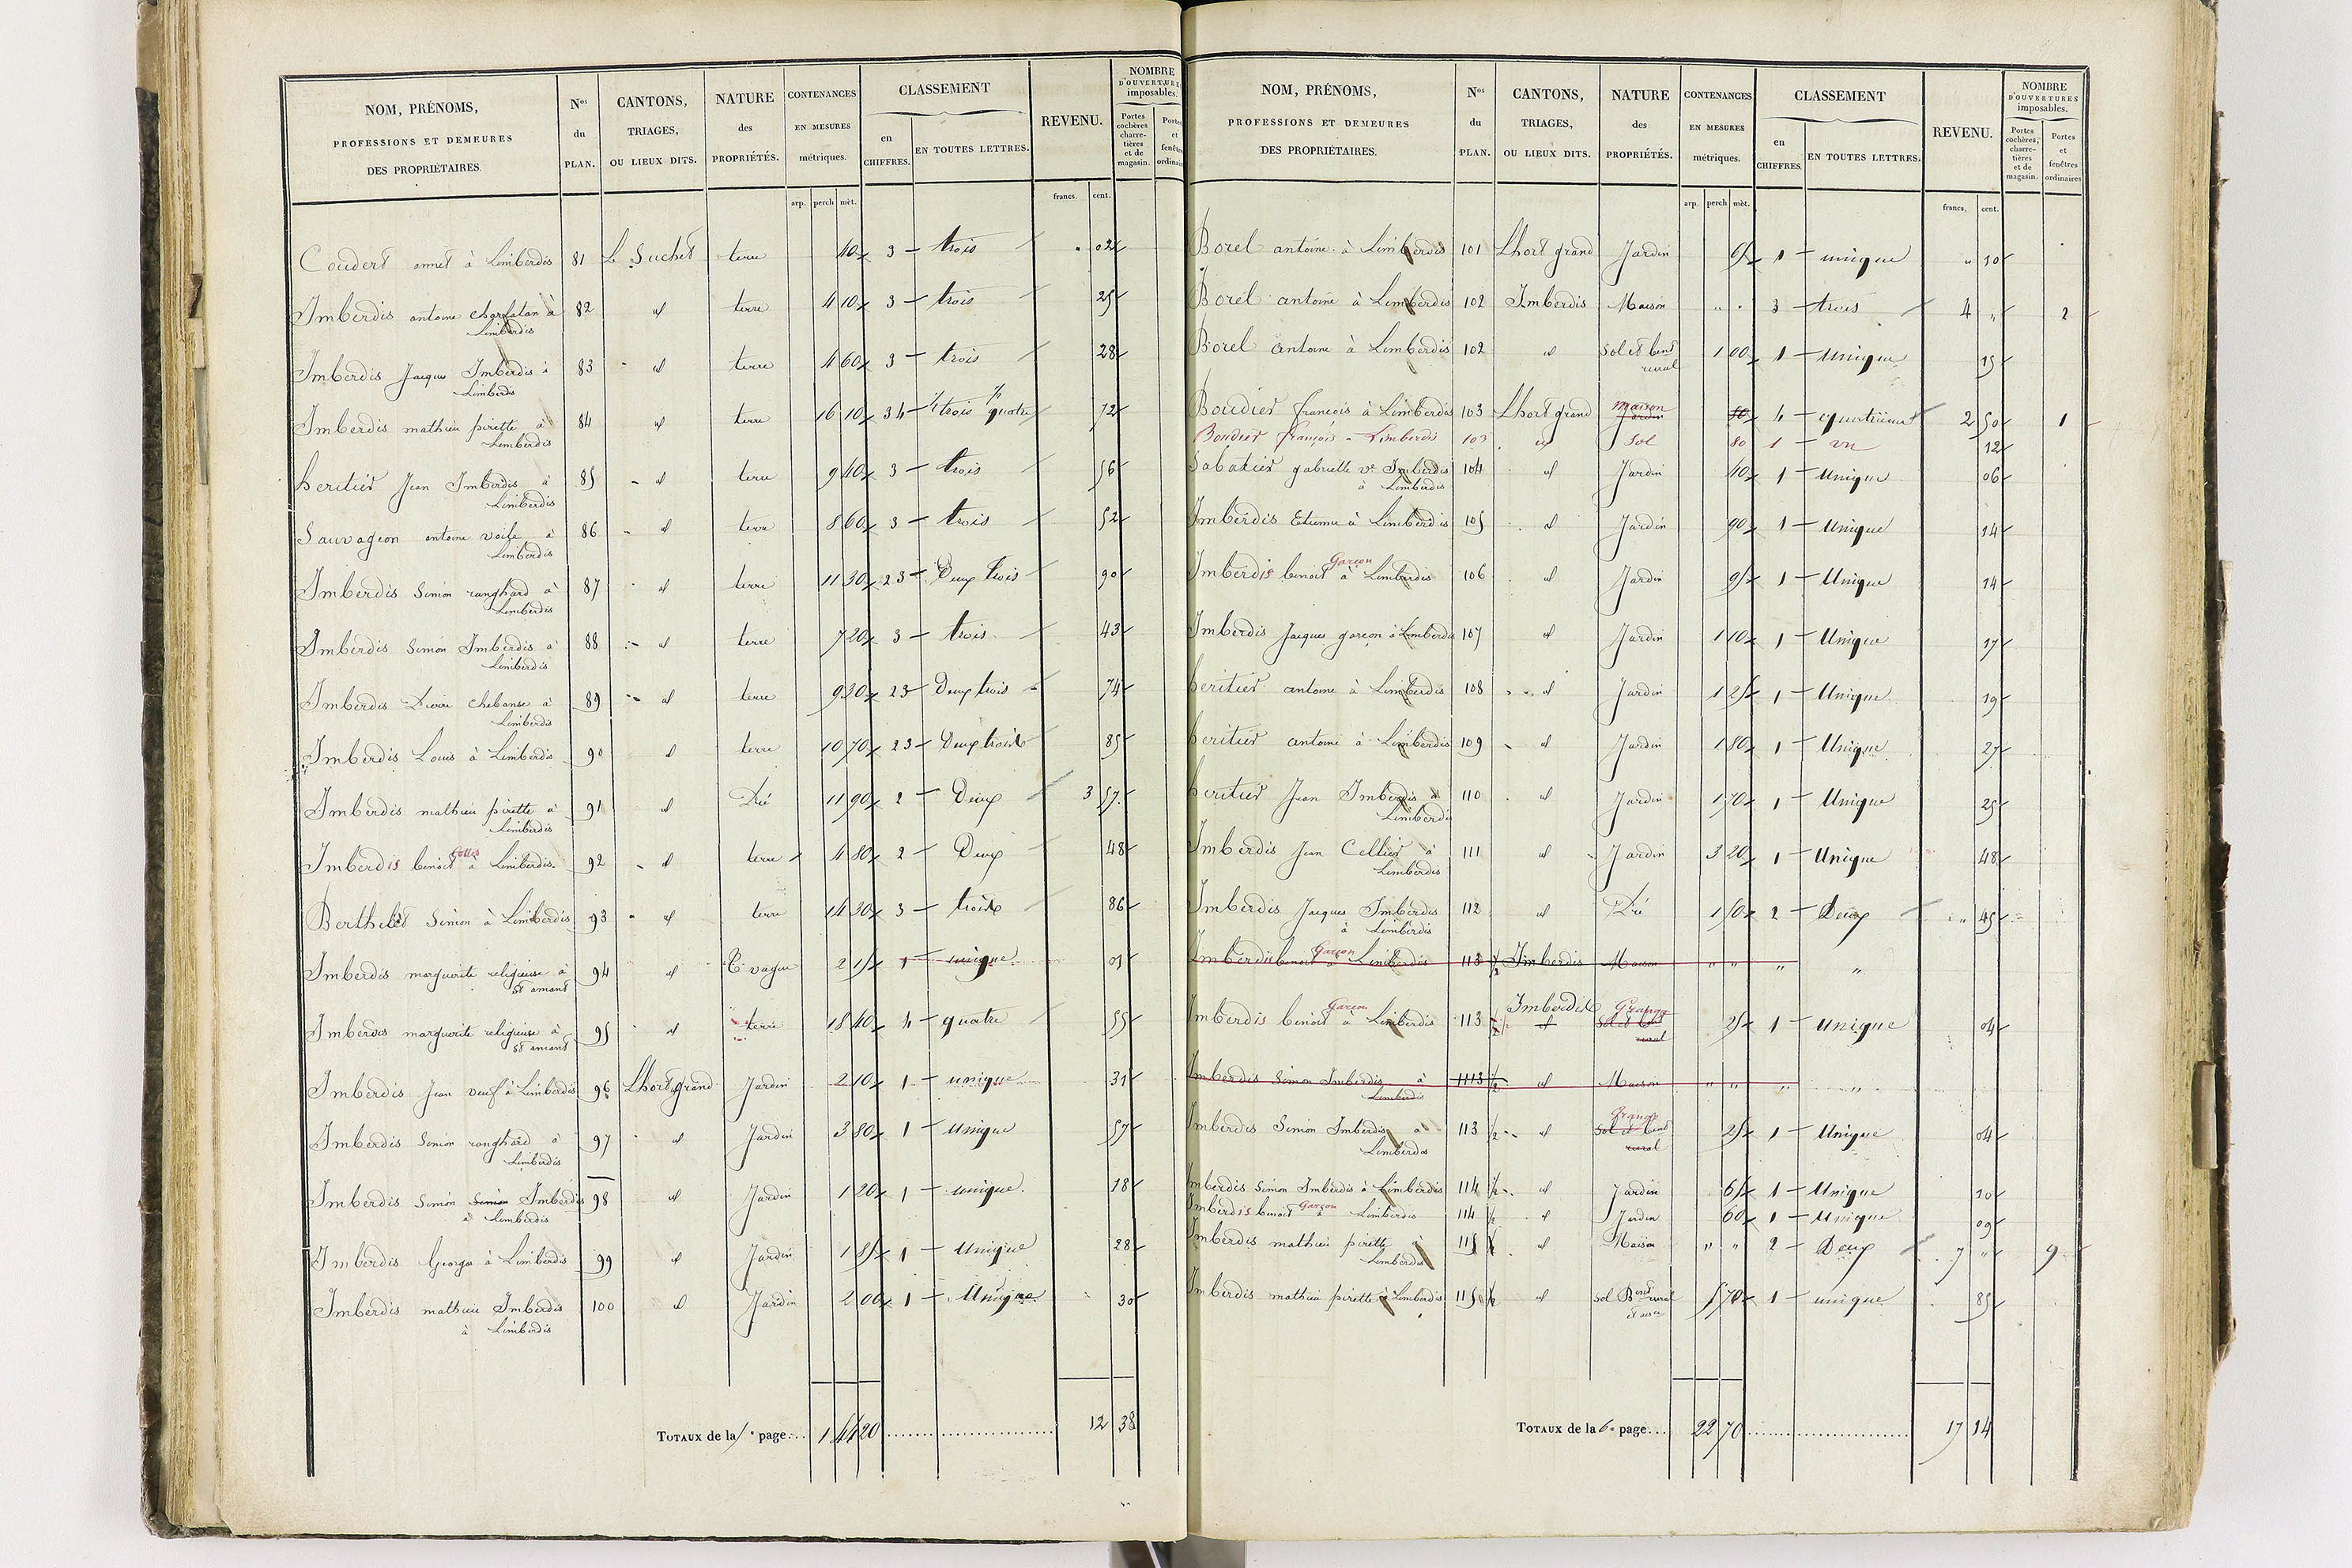 NOM, PRÉNOMS,
PROFESSIONS ET DEMEURES
DES PROPRIÉTAIRES.
Nos du PLAN.
CANTONS, TRIAGES, OU LIEUX DITS.
NATURE des PROPRIÉTÉS.
CONTENANCES EN MESURES métriques.
CLASSEMENT
en CHIFFRES.
EN TOUTES LETTRES.
REVENU.
NOMBRE D'OUVERTURES imposables.
Portes cochères, charretières et de magasin.
Portes et fenêtres ordinaires
arp. perch mèt. francs. cent.
Coudert annet à Limberdis 81 Le Suchet terre 40 3 trois 02
Imberdis antoine charlatan à 82 id terre 4 10 3 trois 25
Limberdis
Imberdis Jacques Imberdis à 83 id terre 4 60 3 trois 28
Limberdis
Imberdis mathieu pirette à 84 id terre 16 10 3 4 ½ trois ½ quatre 72
Limberdis
heritier Jean Imberdis à 85 id terre 9 40 3 trois 56
Limberdis
Sauvageon antoine voile à 86 id terre 8 60 3 trois 52
Limberdis
Imberdis Simon ranghard à 87 id terre 11 30 2 3 Deux trois 90
Limberdis
Imberdis Simon Imberdis à 88 id terre 7 20 3 trois 43
Limberdis
Imberdis Pierre chebanse à 89 id terre 9 30 2 3 Deux trois 74
Limberdis
Imberdis Louis à Limberdis 90 id terre 10 70 2 3 Deux trois 85
Imberdis mathieu pirette à 91 id Pré 11 90 2 Deux 3 57
Limberdis
Imberdis benoit à Limberdis 92 id terre 4 80 2 Deux 48
Berthelet Simon à Limberdis 93 id terre 14 30 3 trois 86
Imberdis marguerite religieuse à 94 id T vague 2 15 1 unique 01
St amant
Imberdis marguerite religieuse à 95 id terre 18 40 4 quatre 55
St amant
Imberdis Jean veuf à Limberdis 96 Lhort grand Jardin 2 10 1 unique 31
Imberdis Simon ranghard à 97 id Jardin 3 80 1 Unique 57
Limberdis
Imberdis Simon Simon Imberdis 98 id Jardin 1 20 1 unique 18
à Limberdis
Imberdis George à Limberdis 99 id Jardin 1 85 1 Unique 28
Imberdis mathieu Imberdis 100 id Jardin 2 00 1 Unique 30
à Limberdis
TOTAUX de la 5e page... 1 44 20 12 38
NOM, PRÉNOMS,
PROFESSIONS ET DEMEURES
DES PROPRIÉTAIRES.
Nos du PLAN.
CANTONS, TRIAGES, OU LIEUX DITS.
NATURE des PROPRIÉTÉS.
CONTENANCES EN MESURES métriques.
CLASSEMENT
en CHIFFRES.
EN TOUTES LETTRES.
REVENU.
NOMBRE D'OUVERTURES imposables.
Portes cochères, charretières et de magasin.
Portes et fenêtres ordinaires
arp. perch mèt. francs. cent.
Borel antoine à Limberdis 101 Lhort grand Jardin 65 1 unique " 10
Borel antoine à Limberdis 102 Imberdis Maison " " 3 trois 4 " 2
Borel antoine à Limberdis 102 id Sol et bent rural 1 00 1 Unique 15
Boudier françois à Limberdis 103 Lhort grand Maison Jardin 80 4 quatrieme 2 50 1
Boudier françois à Limberdis 103 id Sol 80 1 un 12
Sabatier gabrielle ve Imberdis 104 id Jardin 40 1 Unique 06
à Limberdis
Imberdis Etienne à Limberdis 105 id Jardin 90 1 Unique 14
Imberdis benoit Garçon à Limberdis 106 id Jardin 95 1 Unique 14
Imberdis Jacques garçon à Limberdis 107 id Jardin 1 10 1 Unique 17
heritier antoine à Limberdis 108 id Jardin 1 25 1 Unique 19
heritier antoine à Limberdis 109 id Jardin 1 80 1 Unique 27
heritier Jean Imberdis à 110 id Jardin 1 70 1 Unique 25
Limberdis
Imberdis Jean Cellier à 111 id Jardin 3 20 1 Unique 48
Limberdis
Imberdis Jacques Imberdis 112 id Pré 1 50 2 Deux " 45
à Limberdis
Imberdis benoit Garçon à Limberdis 113 ½ Imberdis Maison " " " "
Imberdis benoit Garçon à Limberdis 113 ½ Imberdis id Grange Sol et bent rural 25 1 Unique 04
Imberdis Simon Imberdis à 113 ½ id Maison " " " "
Limberdis
Imberdis Simon Imberdis à 113 ½ id Grange Sol et bent rural 25 1 Unique 04
Limberdis
Imberdis Simon Imberdis à Limberdis 114 ½ id Jardin 65 1 Unique 10
Imberdis benoit Garçon à Limberdis 114 ½ id Jardin 60 1 Unique 09
Imberdis mathieu pirette à 115 id Maison " " 2 Deux 7 " 9
Limberdis
Imberdis mathieu pirette à Limberdis 115 id sol Bent rural et aisce 5 70 1 unique 85
TOTAUX de la 6e page... 22 70 17 14